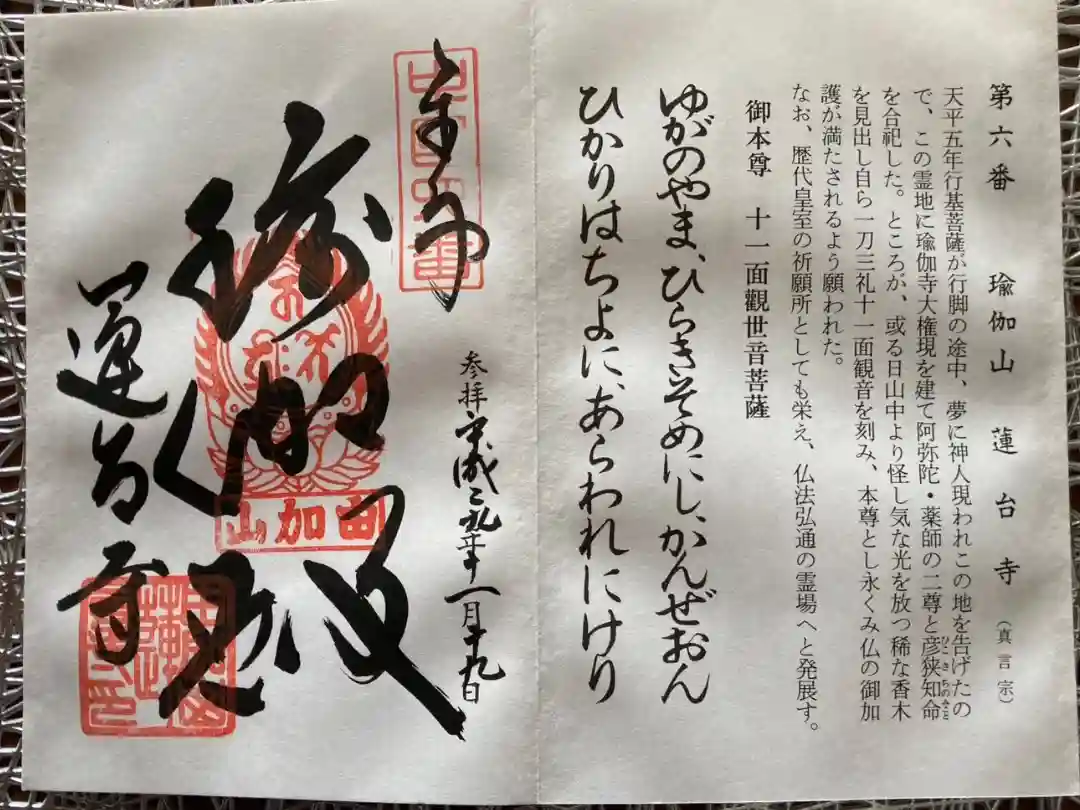 第六番 瑜伽山 蓮台寺 (真言宗)
天平五年行基菩薩が行脚の途中、夢に神人現われこの地を告げたの
で、この霊地に瑜伽寺大権現を建て阿弥陀・薬師の二尊と彦狭知命
ひこさちのみこと
を合祀した。ところが、或る日山中より怪し気な光を放つ稀な香木
を見出し自ら一刀三礼十一面観音を刻み、本尊とし永くみ仏の御加
護が満たされるよう願われた。
なお、歴代皇室の祈願所としても栄え、仏法弘通の霊場へと発展す。
御本尊 十一面觀世音菩薩
ゆがのやま、ひらきそめにし、かんぜおん
ひかりはちよに、あらわれにけり
奉拝
参拝 平成二九年十一月十九日
瑜伽大
由加山
蓮台寺